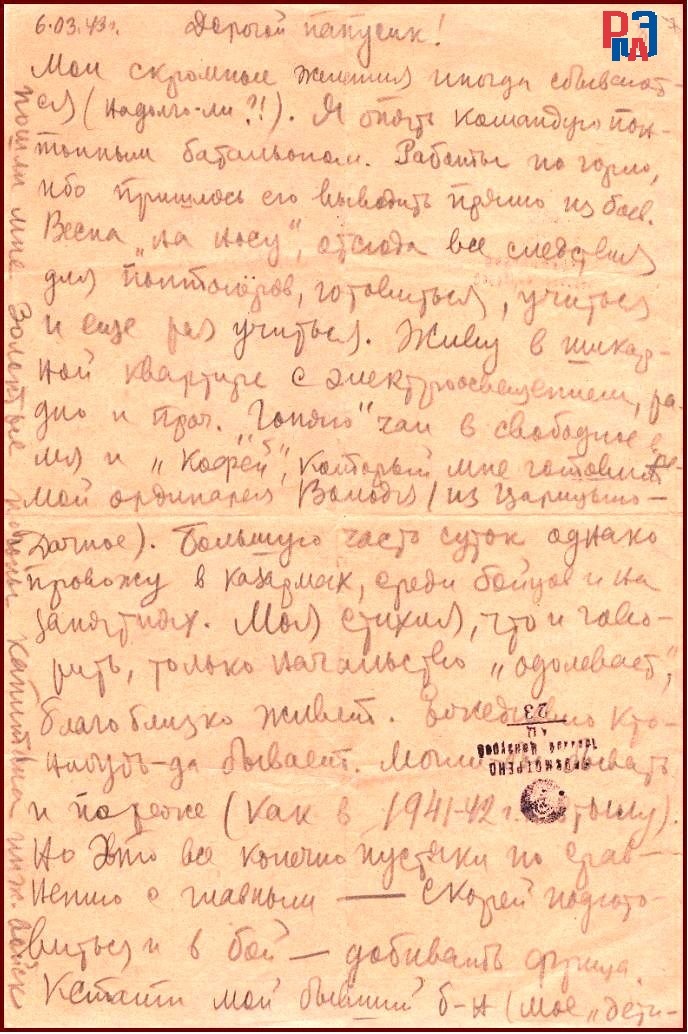 6.03.43г. Дорогой папусик!
Мои скромные желания иногда сбывают-
ся (надолго-ли?!). Я опять командую пон-
тонным батальоном. Работы по горло,
ибо пришлось его выводить прямо из боев.
Весна „на носу", отсюда все следствия
для понтонёров, готовиться, учиться
и еще раз учиться. Живу в шикар-
ной квартире с электроосвещением, ра-
дио и проч. „Гоняю" чаи в свободное вре-
мя и „кофей", который мне готовит
мой ординарец Володя (из Царицыно-
Дачное). Большую часть суток однако
провожу в казармах, среди бойцов и на
занятиях. Моя стихия, что и гово-
рить, только начальство „одолевает",
благо близко живет. Ежедневно кто-
нибудь-да бывает. Могли бывать
и пореже (как в 1941-42 г. тылу).
Но это все конечно пустяки по срав-
нению с главным — скорей подгото-
виться и в бой — добивать фрица.
Кстати мой бывший б-н (мое „дети-
пошли мне золотые погоны капитана инж. войск
ПРОСМОТРЕНО
Военной Цензурой
23
РПАЭ